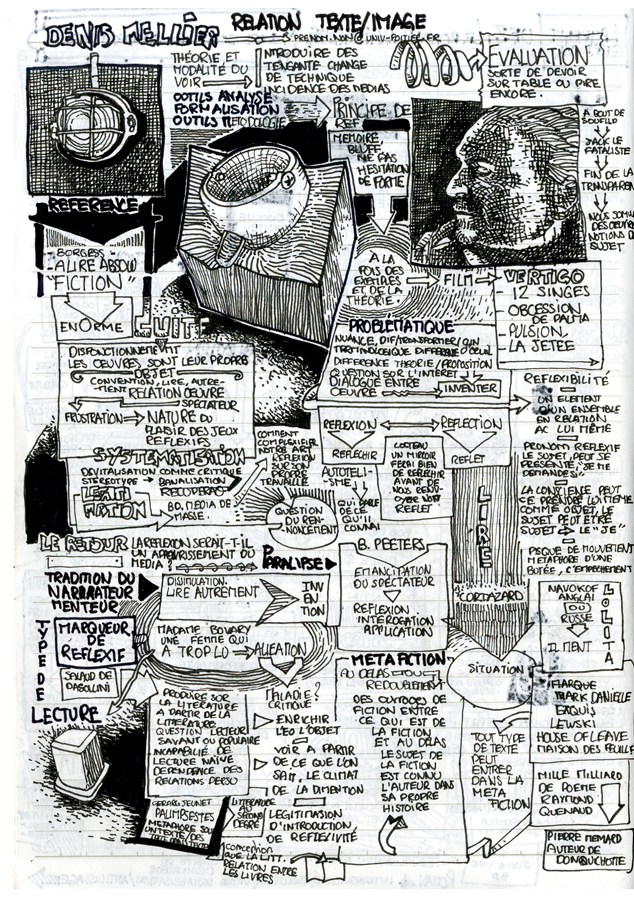 DENIS MELLIER
RELATION TEXTE/IMAGE
PRENOM.NON@UNIV-POITIER.FR
THÉORIE ET
MODALITÉ DU
VOIR
INTRODUIRE DES
TENGANTE CHANGE
DE TECHNIQUE
INCIDENCE DES MEDIAS
OUTILS ANALYSE
FORMALISATION
OUTILS METODOLOGIE
PRINCIPE DE
REF
MEMOIRE,
BLUFF
NE PAS
HESITATION
DE FORME
EVALUATION
SORTE DE DEVOIR
SUR TABLE OU PIRE
ENCORE.
A BOUT DE
SOUFFLO
JACK LE
FATALISTE
FIN DE LA
TRANSPAREN
NOUS SOMM
DES OEUVRE
NOTIONS D
SUJET
REFERENCE
BORGESS
A LIRE ABSOLU
"FICTION"
ENORME
SUITE
A LA
FOIS DES
EXEMPLES
ET DE LA
THÉORIE.
FILM
VERTIGO
- 12 SINGES
- OBCESSION
DE PALMA
- PULSION.
- LA JETEE
DISFONCTIONNEMENT
LES OEUVRES SONT LEUR PROPRE
SUJET
CONVENTION, LIRE, AUTRE-
MENT RELATION OEUVRE
SPECTATEUR
FRUSTRATION
NATURE DU
PLAISIR DES JEUX
REFLEXIFS
PROBLÉMATIQUE
DIFFERENCE THÉORIE/PROPOSITION
QUESTION SUR L'INTÉRET
DIALOGUE ENTRE
OEUVRE
INVENTER
REFLEXIBILITÉ
UN ELEMENT
D'UN ENSEMBLE
EN RELATION
AC LUI MÊME
PRONOM REFLEXIF
LE SUJET, PEUT SE
PRÉSENTÉ, "JE ME
DEMANDES"
LA CONSCIENCE PEUT
SE PRENDRE LUI MÊME
COMME OBJET, LE
SUJET PEUT ÊTRE
SUJET LE "JE"
METAPHORE D'UNE
BUTÉE, C'EMPECHEMENT
REFLEXION
REFLECTION
REFLECHIR
REFLET
COCTEAU
UN MIROIR
FERAI BIEN
DE REFLECHIR
AVANT DE
NOUS RENV-
OYER NOTRE
REFLET
AUTOTELI-
SME
QUI PARLE
DE CE
QU'IL
CONNAI
COMMENT
COMPLEXIFIER
NOTRE ART
REFLEXION
SUR SON
PROPRE
TRAVAILLE
SYSTEMATISATION
DEVITALISATION COMME CRITIQUE
STEREOTYPE BANALISATION
BD, MEDIA DE
MASSE.
QUESTION
DU REN-
NONCEMENT
LE RETOUR LA REFLEXION SERAIT-T-IL
UN APPAUVRISSEMENT DU
MEDIA?
PARALIPSE
TRADITION DU
NARRATEUR
MENTEUR
DISSIMULATION
LIRE AUTREMENT
INV
EN
TION
B. PEETERS
EMANCITATION
DU SPECTATEUR
REFLEXION
INTEROGATION
APPLICATION
LIRE
CORTAZARD
NAVOKOF
ANGLAI
OU
RUSSE
IL MENT
LOLITA
TYPE DE
LECTURE
MARQUEUR
DE
REFLEXIF
SALAUD DE
PASOLINI
MADAME BOVARY
UNE FEMME QUI
A TROP LU
ALIEATION
MALADIE?
CRITIQUE
METAFICTION
AU DELAS OU
REDOUBLEMENT
DES OUTOODS DE
FICTION ENTRE
CE QUI EST DE
LA FICTION
ET AU DELAS
LE SUJET DE
LA FICTION
EST CONNU
L'AUTEUR DANS
SA PROPRE
HISTOIRE
SITUATION
TOUT TYPE
DE TEXTE
PEUT
ENTRER
DANS LA
META
FICTION
MARK DANIELLE
LEWSKI
HOUSE OF LEAVE
MAISON DES FEUILLE
MILLE MILLIARD
DE POEME
RAYMOND
QUENAUD
PIERRE MEMARD
AUTEUR DE
DONQUICHOTTE
PRODUIRE SUR
LA LITERATURE
A PARTIR DE LA
LITTERATURE
QUESTION LECTEUR
SAVANT OU POPULAIRE
INCAPABILIÉ AE
LECTURE NAÏVE
DEPENDANCE DES
RELATIONS PERSO
ENRICHIR
L'EO L'OBJET
VOIR A PARTIR
DE CE QUE L'ON
SAIT, LE CLIMAT
DE LA DIMENTION
LEGITIMATION
D'INTRODUCTION
DE REFLEXIVITÉ
GERARD JEUNET
PALIMPSESTES
METAPHORE SOUS
UN TEXTE/DES
LITERATURE
AU SECOND
DEGRÉ
CONCEPTION
QUE LA LITT.
RELATION ENTRE
LES LIVRES